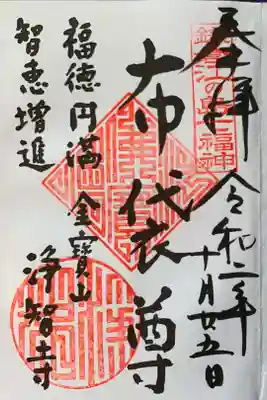 奉拝
令和二年十月廿五日
鎌倉江の島七福神
布袋尊
金寶山
浄智寺
福徳円満
智恵増進